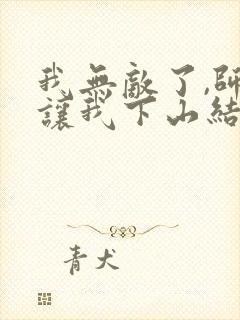 我無敵了,師
讓我下山結
青犬